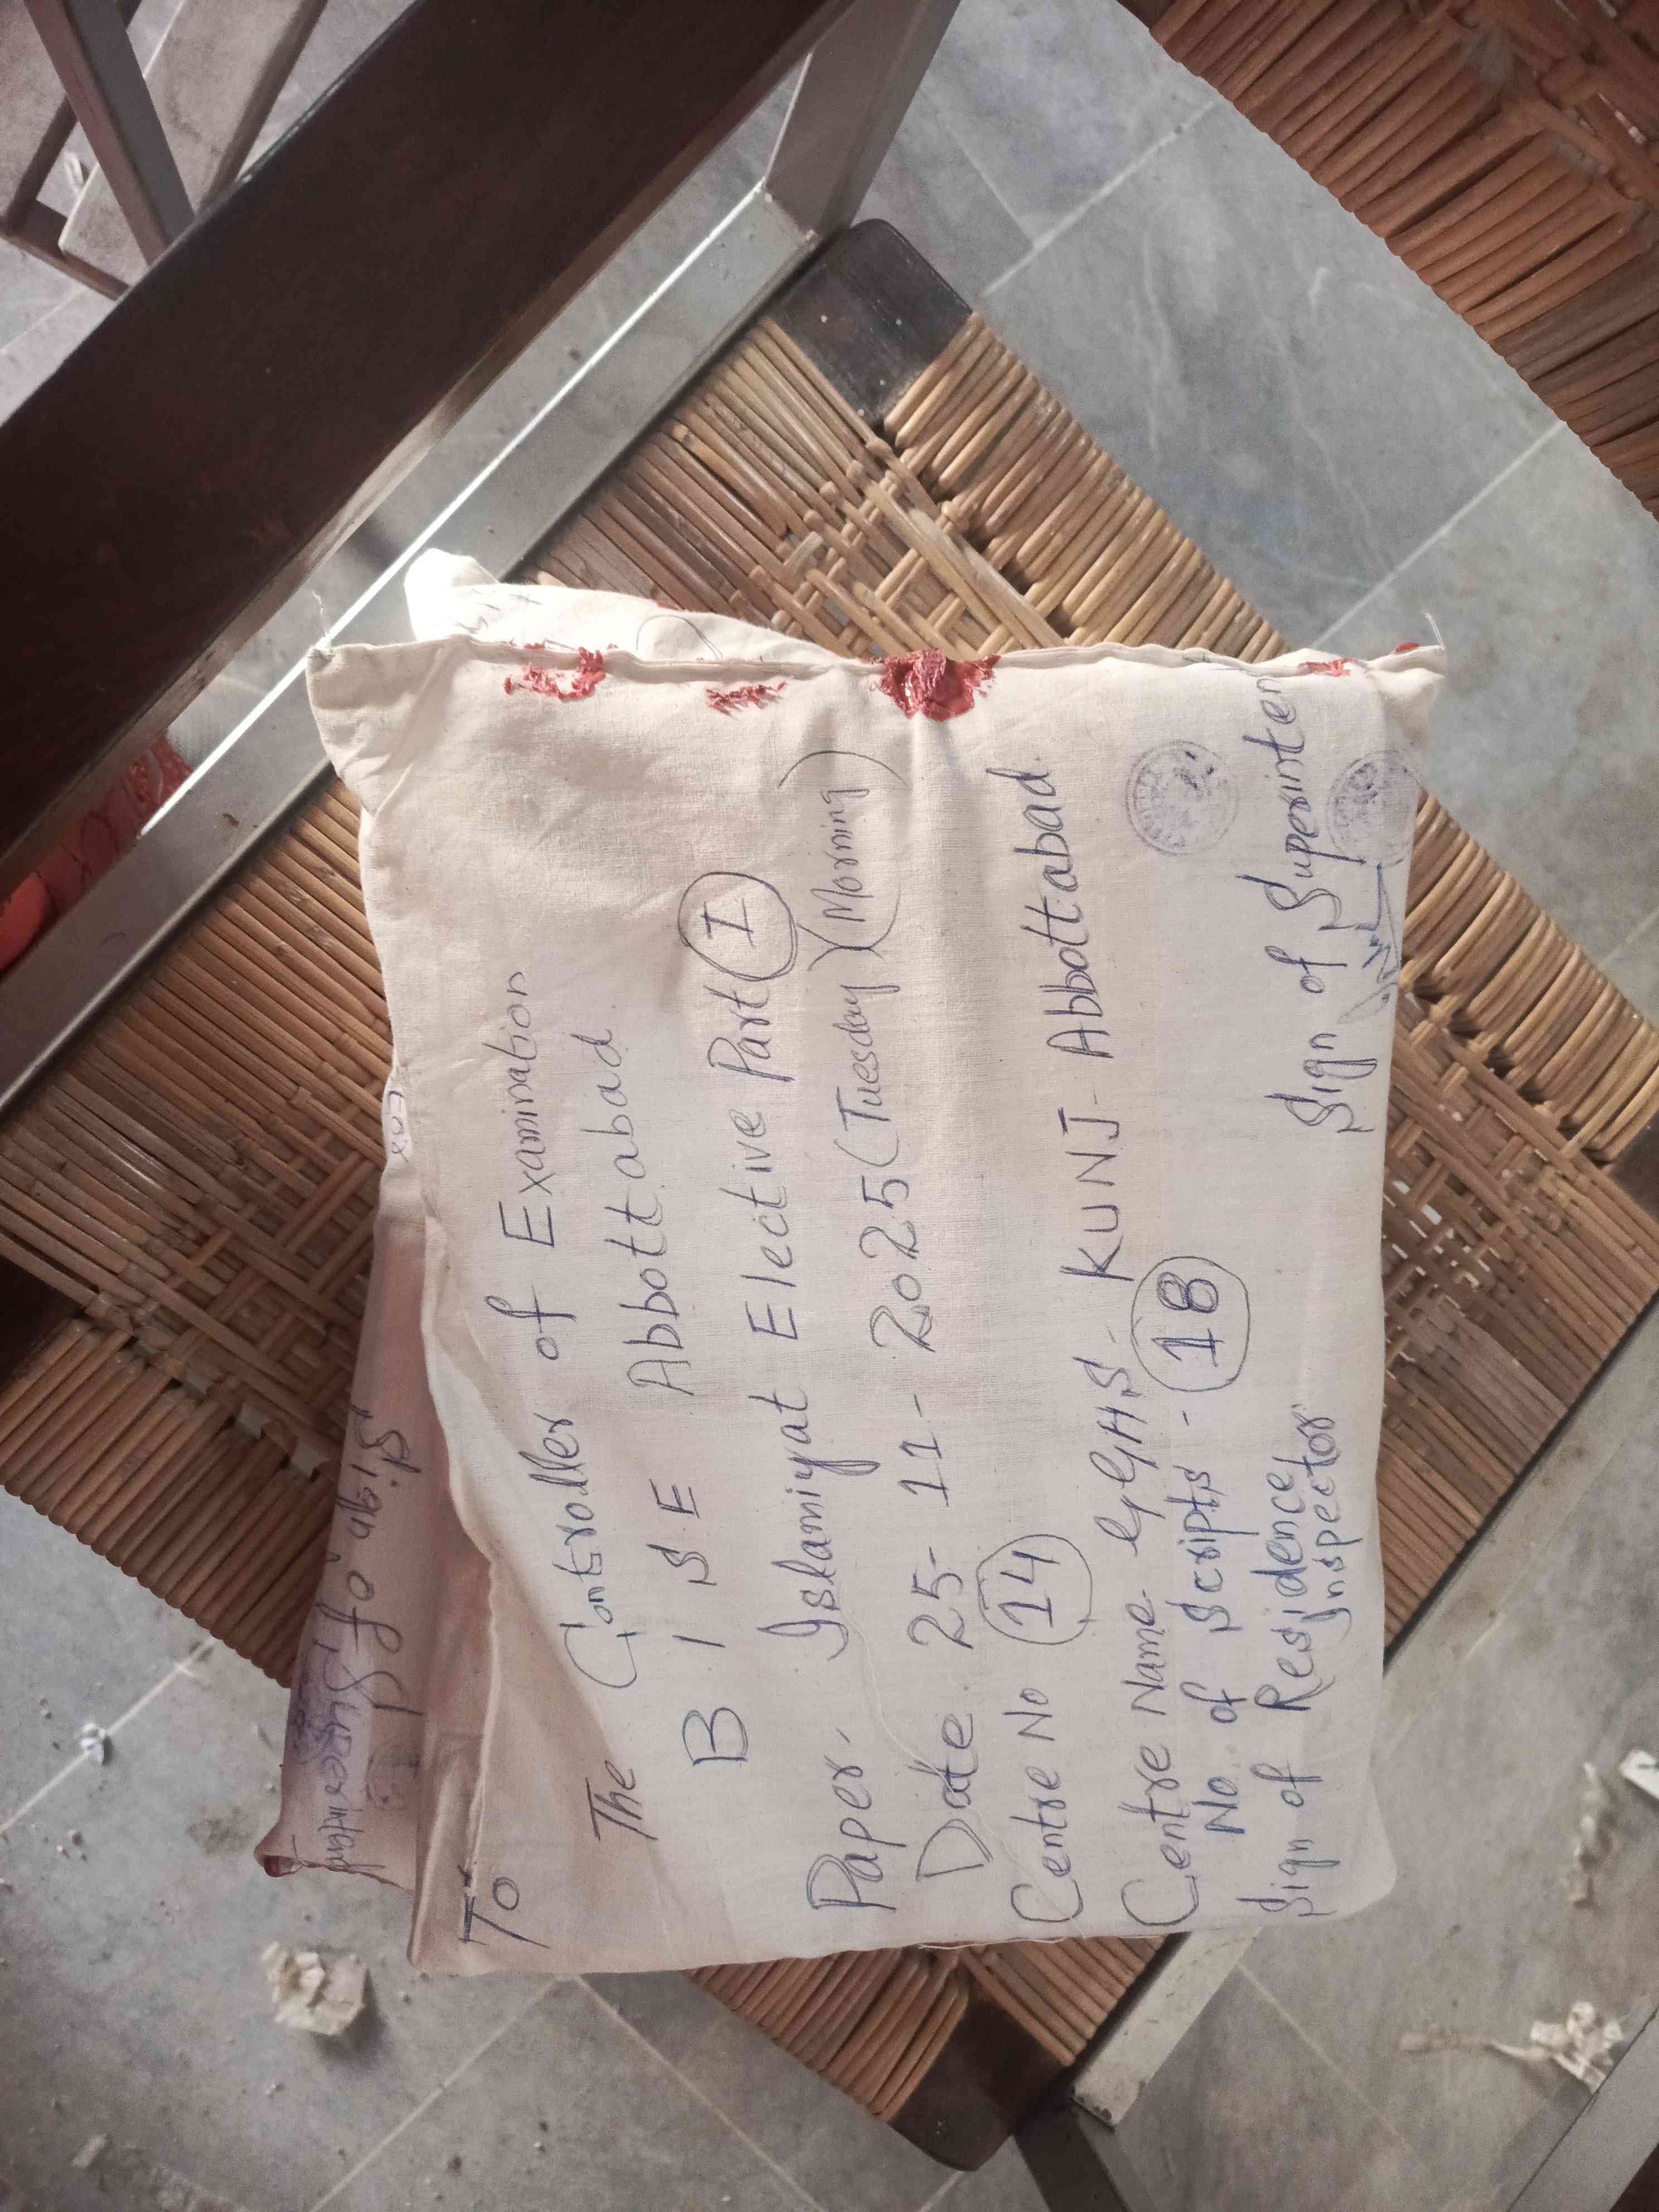 To
The Controller of Examination
B I S E Abbottabad
Paper. Islamiyat Elective Part (I)
Date 25-11-2025 (Tuesday) (Morning)
Centre No 14
Centre Name GGHS- KUNJ- Abbottabad
No. of Scripts - 18
Sign of Residence Inspector
Sign of Superinten
Sign of Superintant